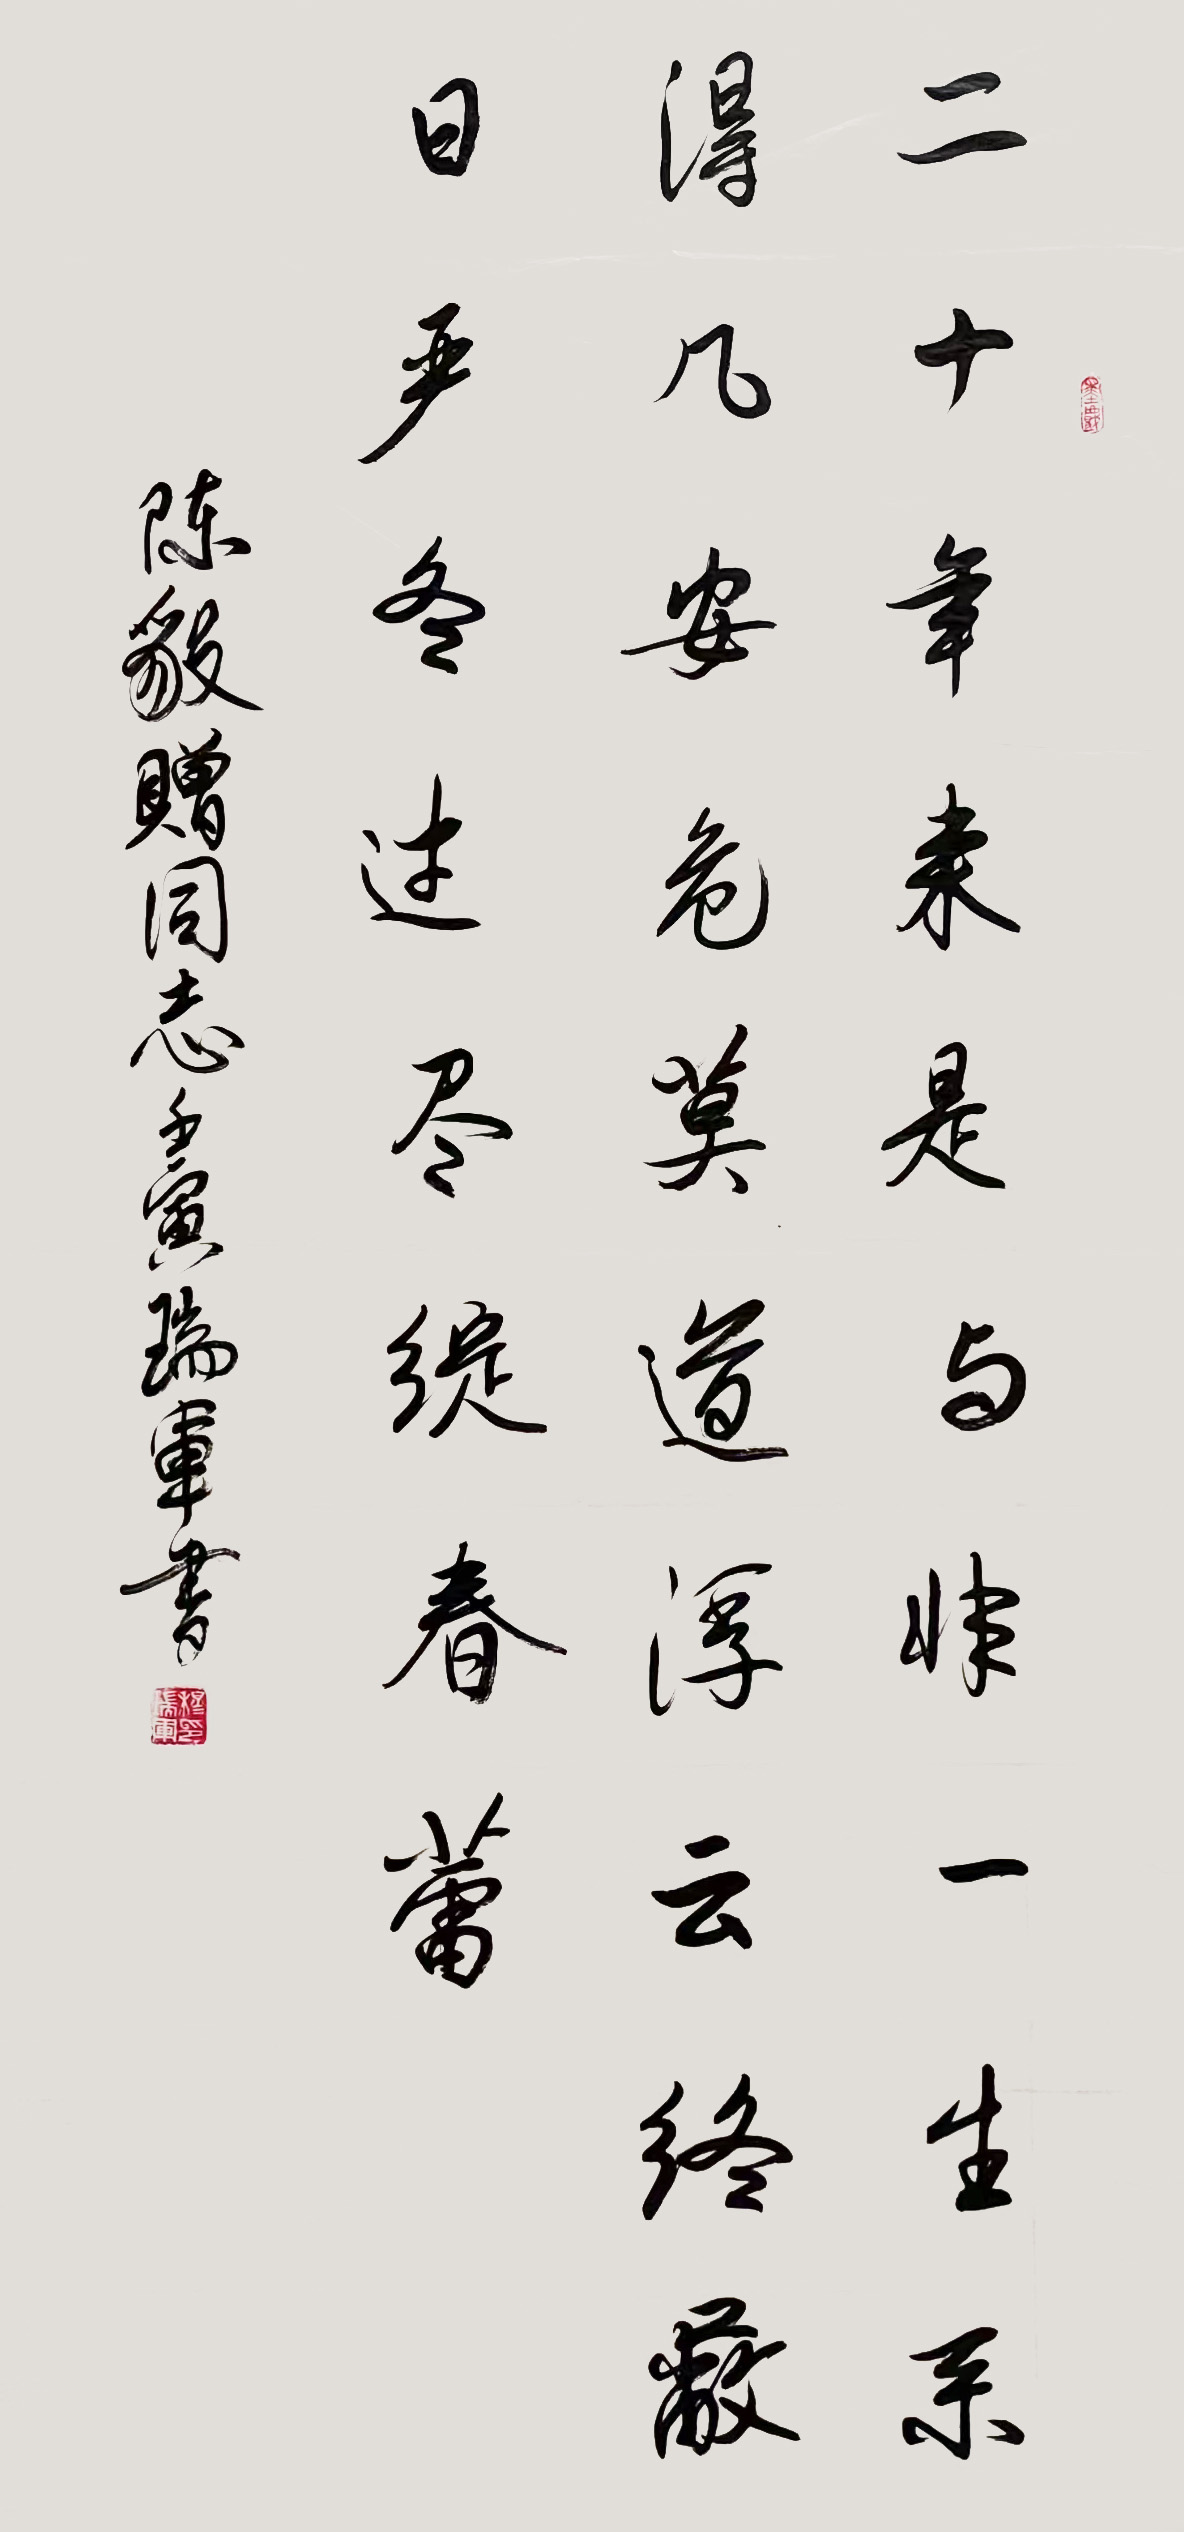 墨戲
二十年来是与非一生系
得几安危莫道浮云终蔽
日严冬过尽绽春蕾
陈毅赠同志壬寅瑞军书